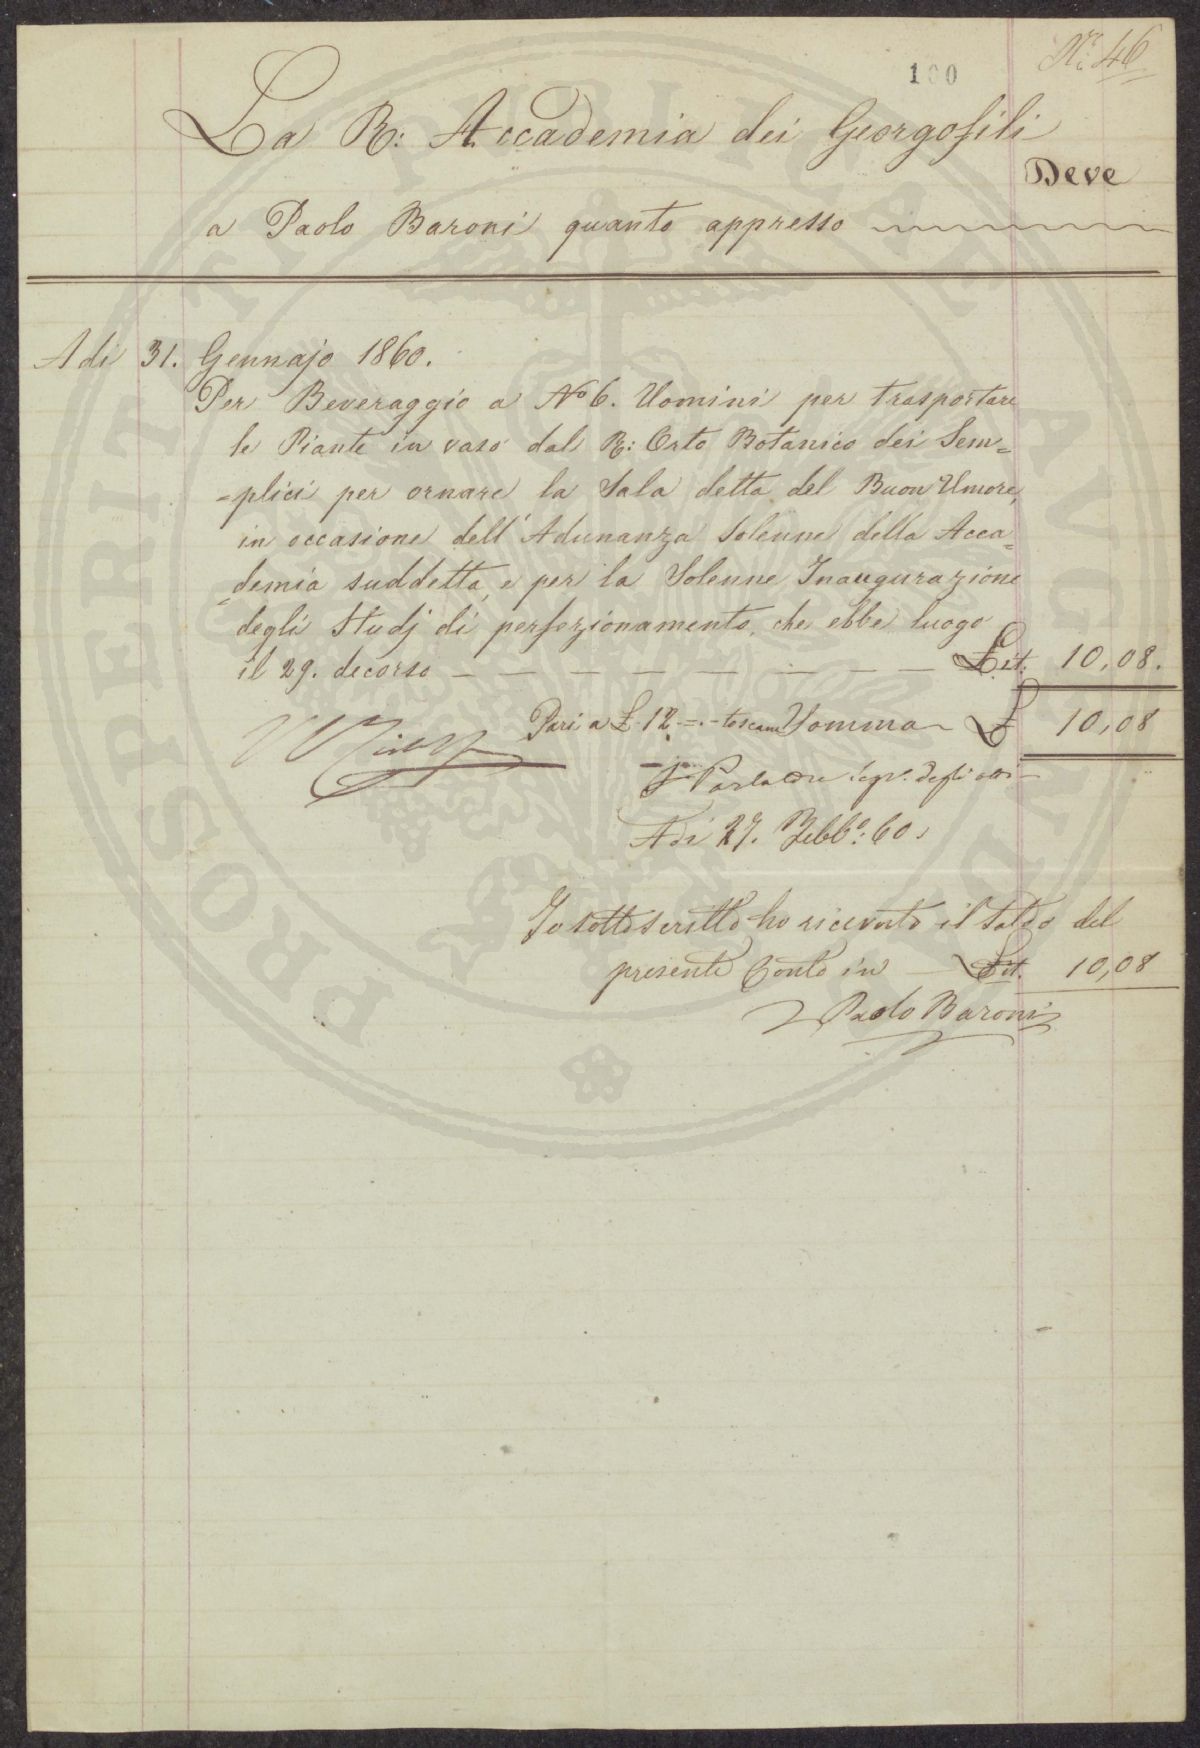 Nº. 46
100
La R: Accademia dei Georgofili
Deve
a Paolo Baroni quanto appresso
Adi 31. Gennajo 1860.
Per Beveraggio a Nº 6. Uomini per trasportare
le Piante in vaso dal R: Orto Botanico dei Sem=
=plici per ornare la Sala detta del Buon Umore,
in occasione dell'Adunanza Solenne della Acca=
=demia suddetta, e per la Solenne Inaugurazione
degli Studj di perfezionamento, che ebbe luogo
il 29. decorso — — — — — — — — £it. 10,08.
Pari a £ 12 =.- toscane Somma £ 10,08
F Parlatore Segr.º degli atti
Adi 27. Febb:º 60.
Io sottoscritto ho ricevuto il saldo del
presente Conto in £it. 10,08
Paolo Baroni
PROSPERITATI PUBLICAE AUGENDAE